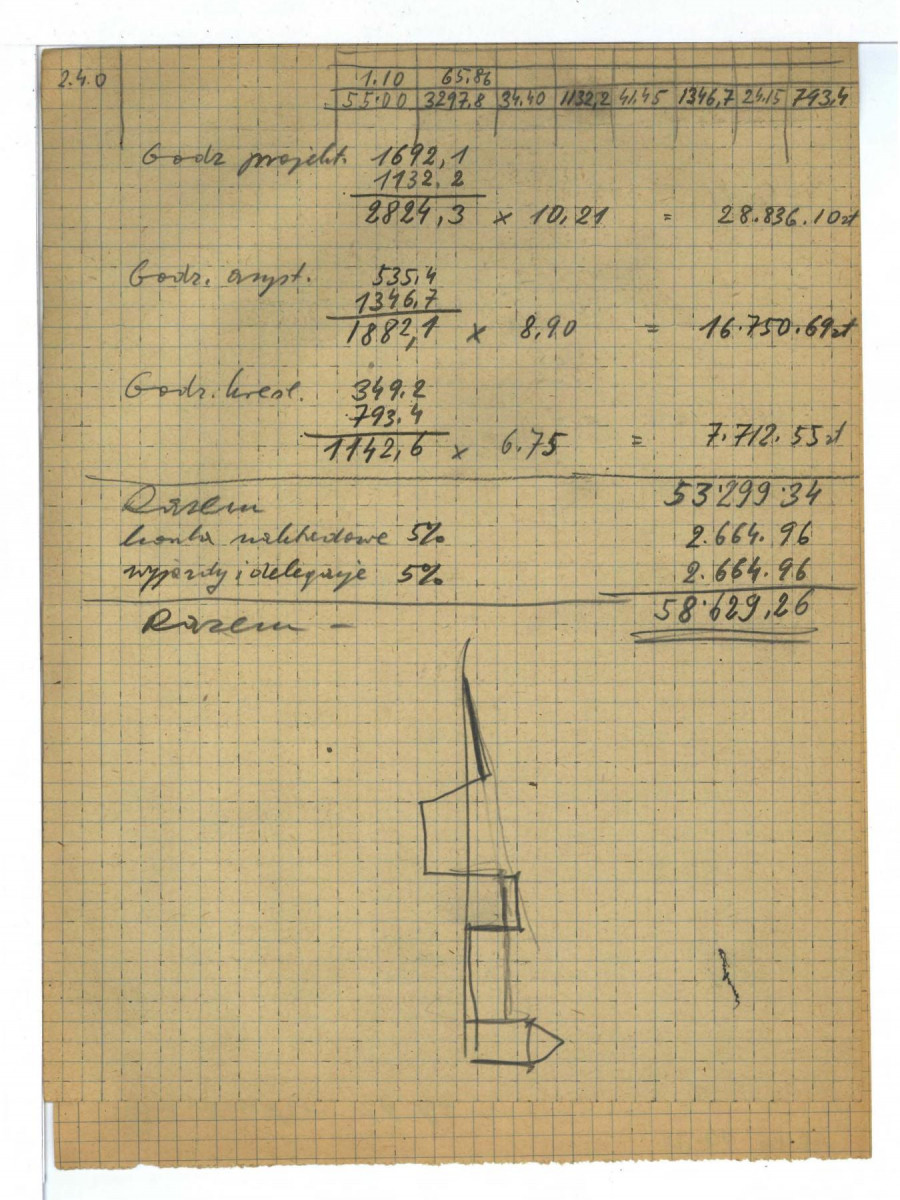 2.4.0 1.10 65.86
55.00 3297.8 34.40 1132,2 41.45 1346,7 24.15 793,4
Godz projekt. 1692,1
1132.2
2824,3 x 10,21 = 28.836.10 zł
Godz. asyst. 535,4
1346,7
1882,1 x 8,90 = 16.750.69 zł
Godz. kresl. 349.2
793.4
1142,6 x 6.75 = 7.712.55 zł
Razem 53.299.34
5% 2.664.96
wyjazdy i delegacje 5% 2.664.96
Razem – 58.629,26